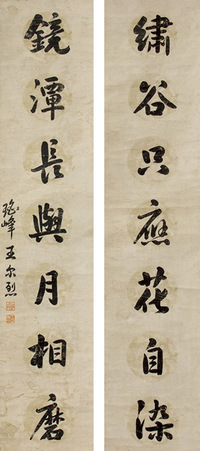 繡谷只應花自染
鏡潭長與月相磨
瑤峰王尔烈